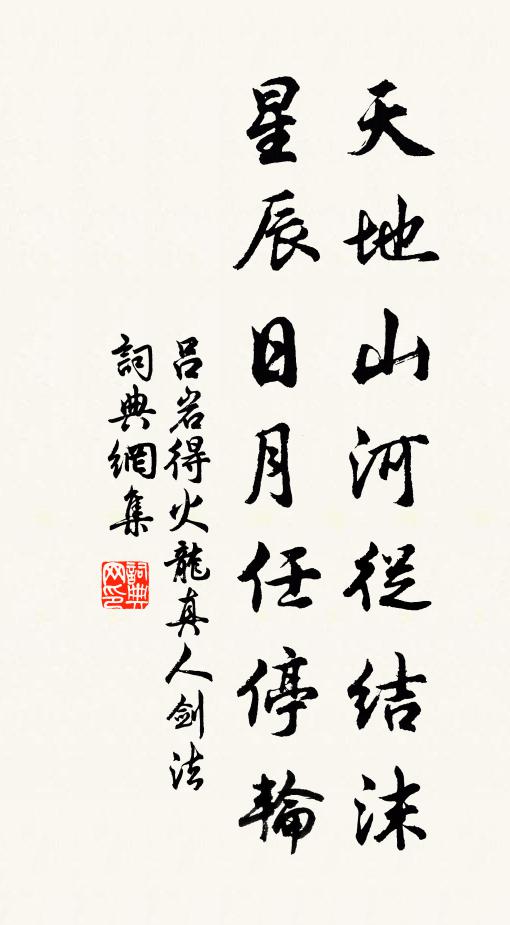 天地山河從結沫
星辰日月任停輪
吕岩得火龍真人剑法
詞典網集
詞典网印